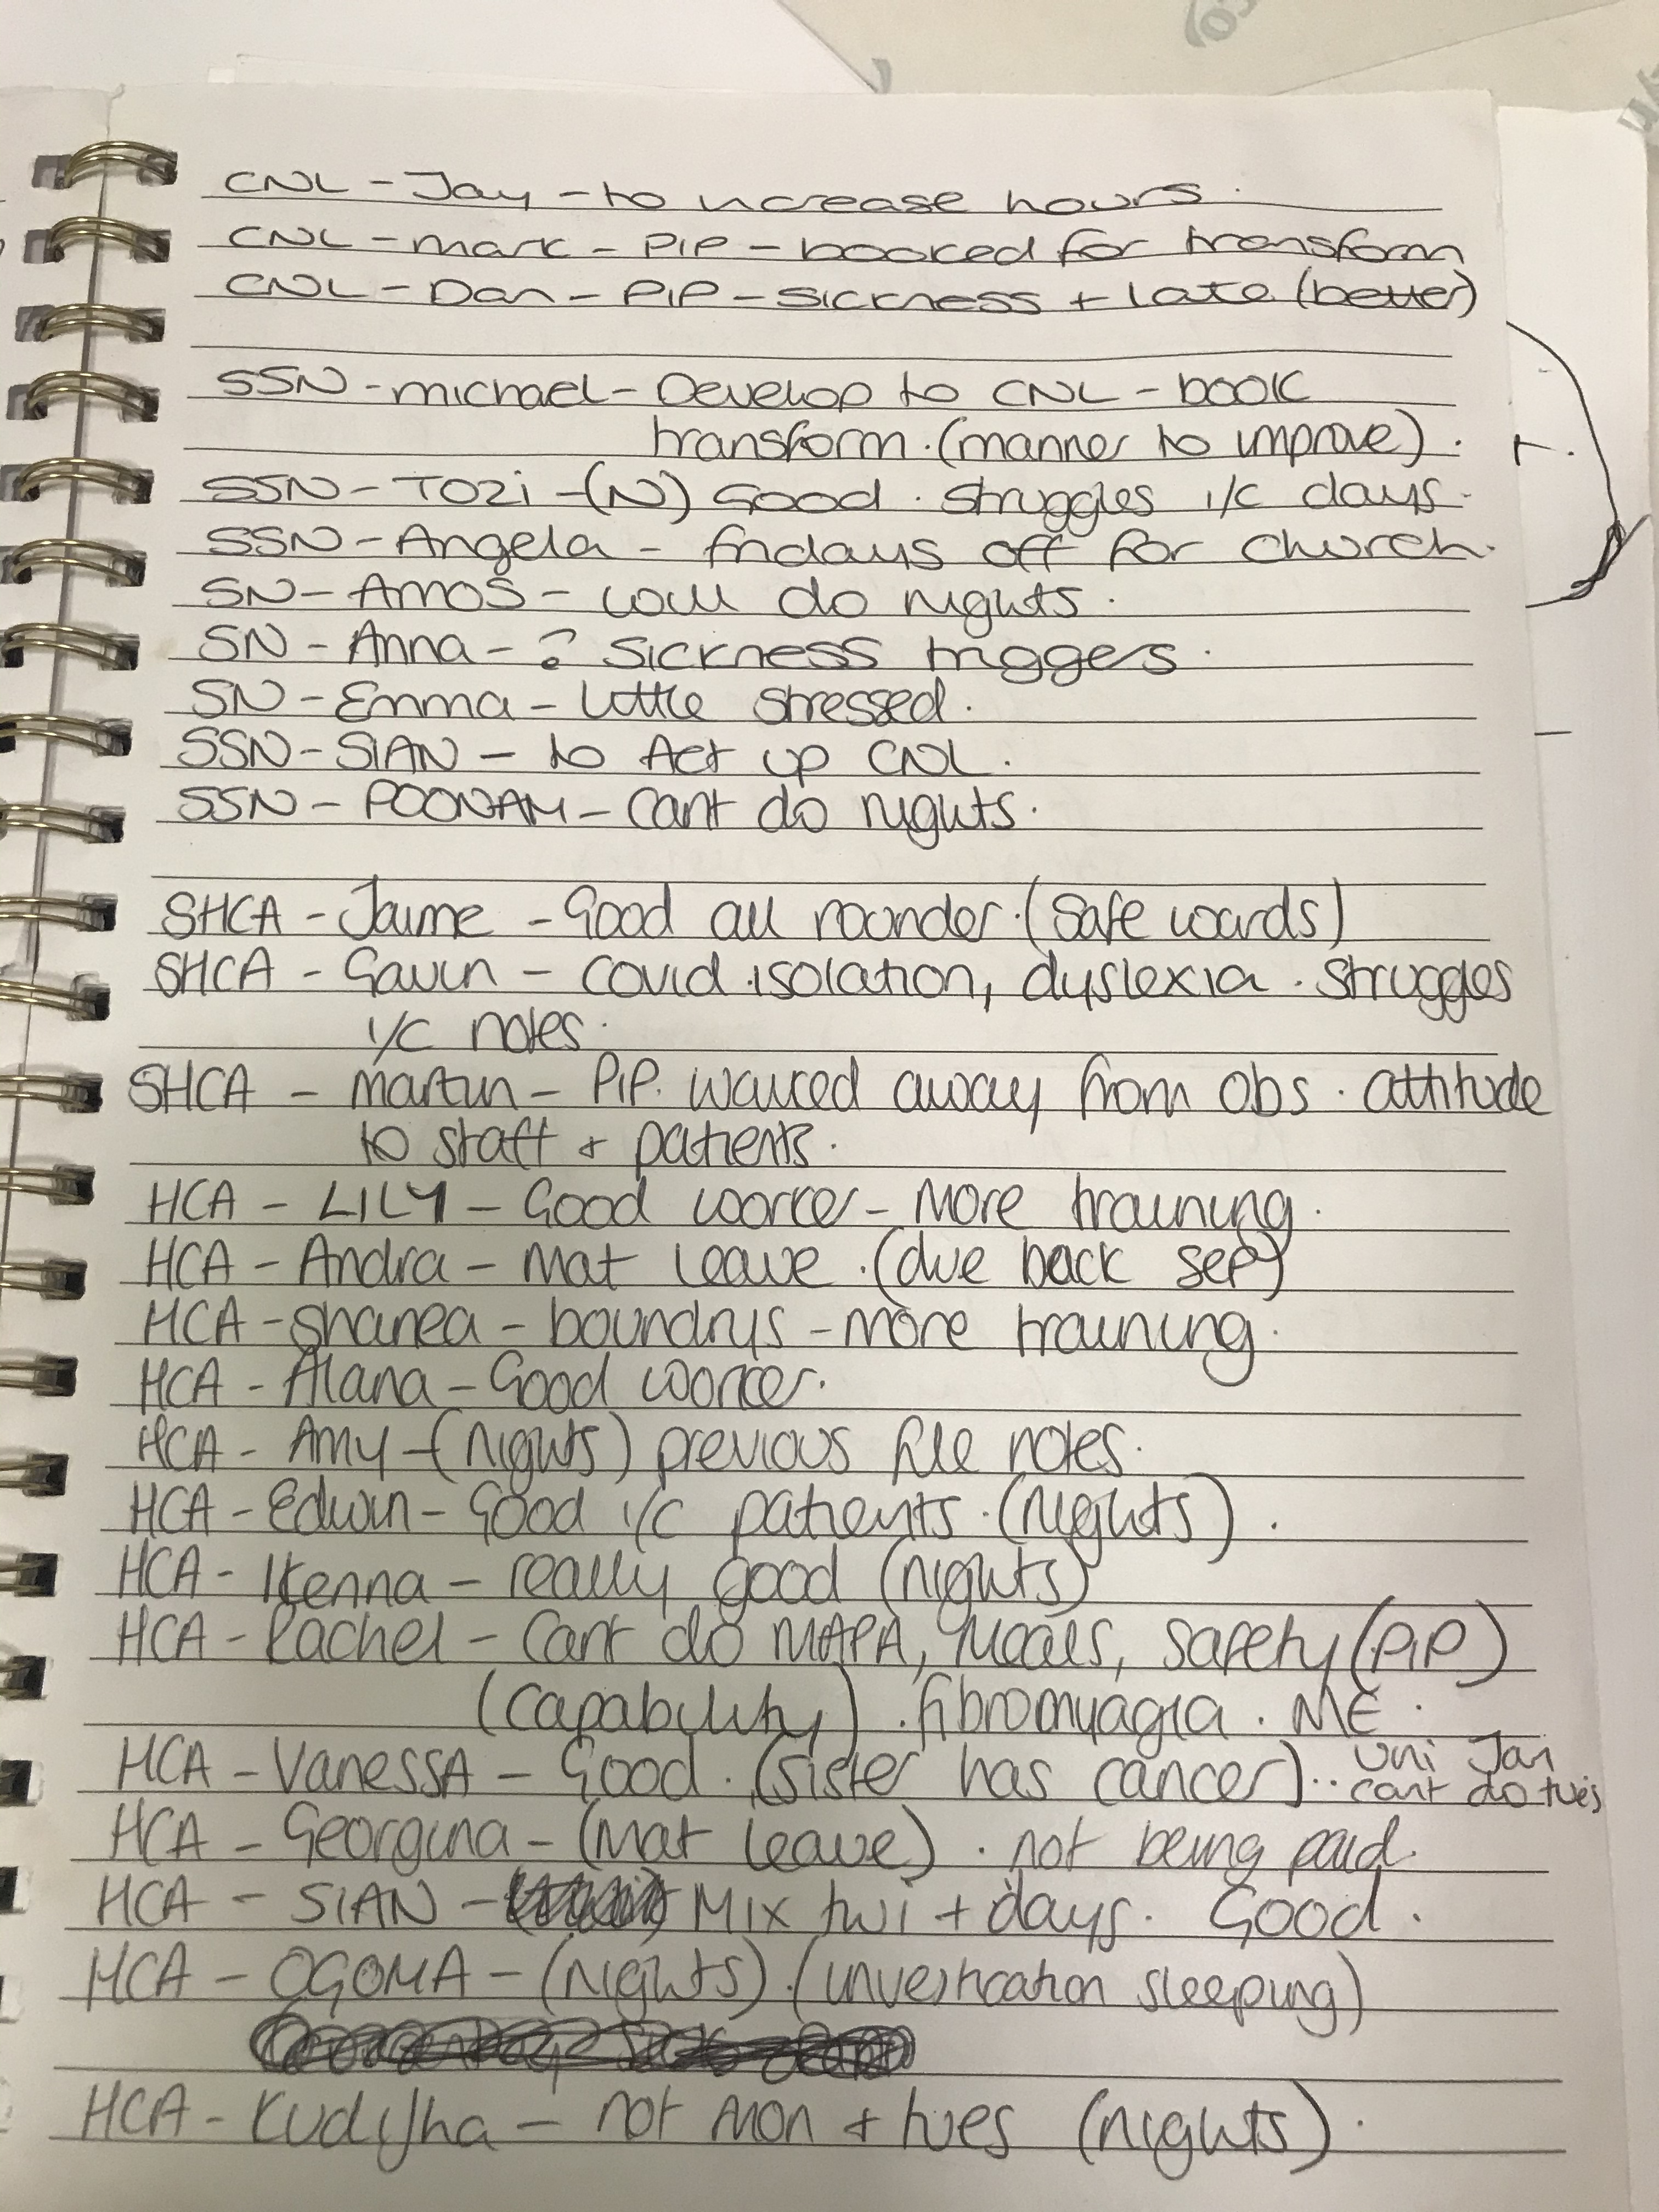 CNL - Jay - to increase hours.
CNL - Mark - PIP - booked for transform
CNL - Dan - PIP - sickness + late (better)
SSN - michael - Develop to CNL - book
transform. (manner to improve).
SSN - Tozi - (N) Good. Struggles i/c days.
SSN - Angela - fridays off for church.
SN - AMOS - will do nights.
SN - Anna - ? sickness triggers.
SN - Emma - little stressed.
SSN - SIAN - to Act up CNL.
SSN - POONAM - Cant do nights.
SHCA - Jaime - Good all rounder. (Safe wards)
SHCA - Gavin - covid isolation, dyslexia. Struggles
i/c notes.
SHCA - Martin - PIP. walked away from obs. attitude
to staff + patients.
HCA - LILY - Good worker - More training.
HCA - Andra - Mat leave. (due back sep)
HCA - Shanea - boundrys - more training.
HCA - Alana - Good worker.
HCA - Amy - (nights) previous file notes.
HCA - Edwin - Good i/c patients. (nights).
HCA - Ikenna - really good (nights)
HCA - Rachel - Cant do MAPA, Meals, Safety (PIP)
(capability). fibromyagia. ME.
HCA - VanessA - Good. (sister has cancer).. uni Jan
cant do tues
HCA - Georgina - (Mat leave). not being paid.
HCA - SIAN - Mix twi + days. Good.
HCA - OGOMA - (nights). (investication sleeping)
HCA - Kudijha - not Mon + tues (nights).